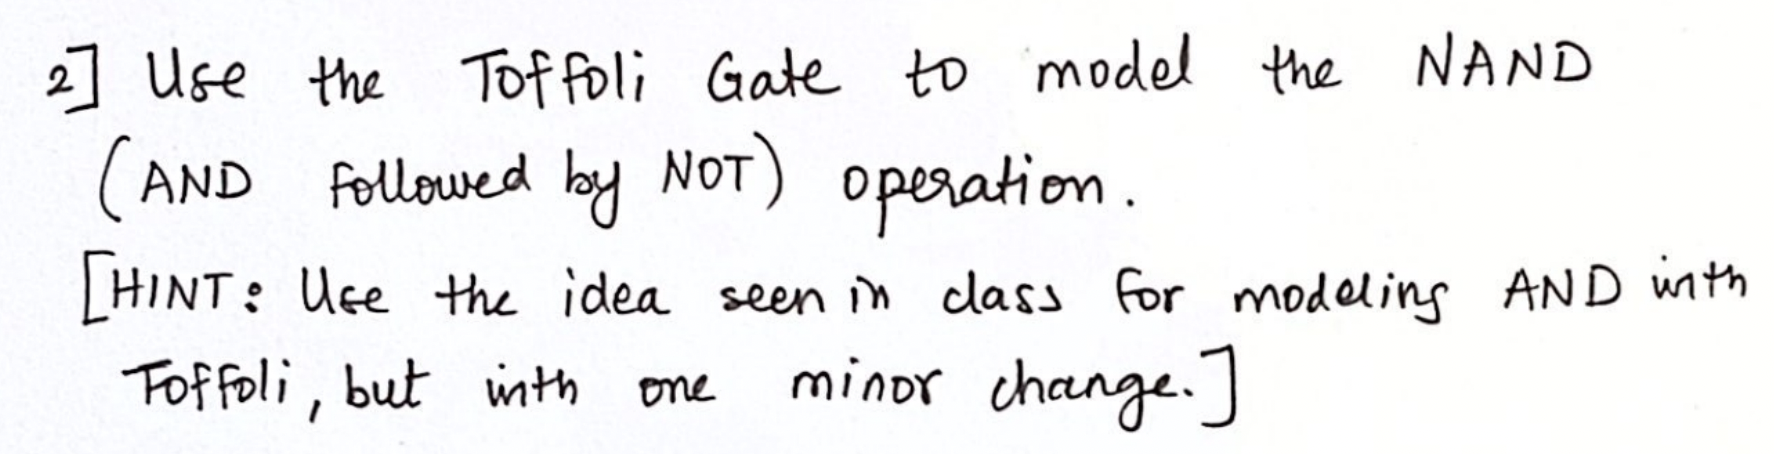 2] Use the Toffoli Gate to model the NAND
(AND followed by NOT) operation.
[HINT: Use the idea seen in class for modeling AND with
Toffoli, but with one minor change.]